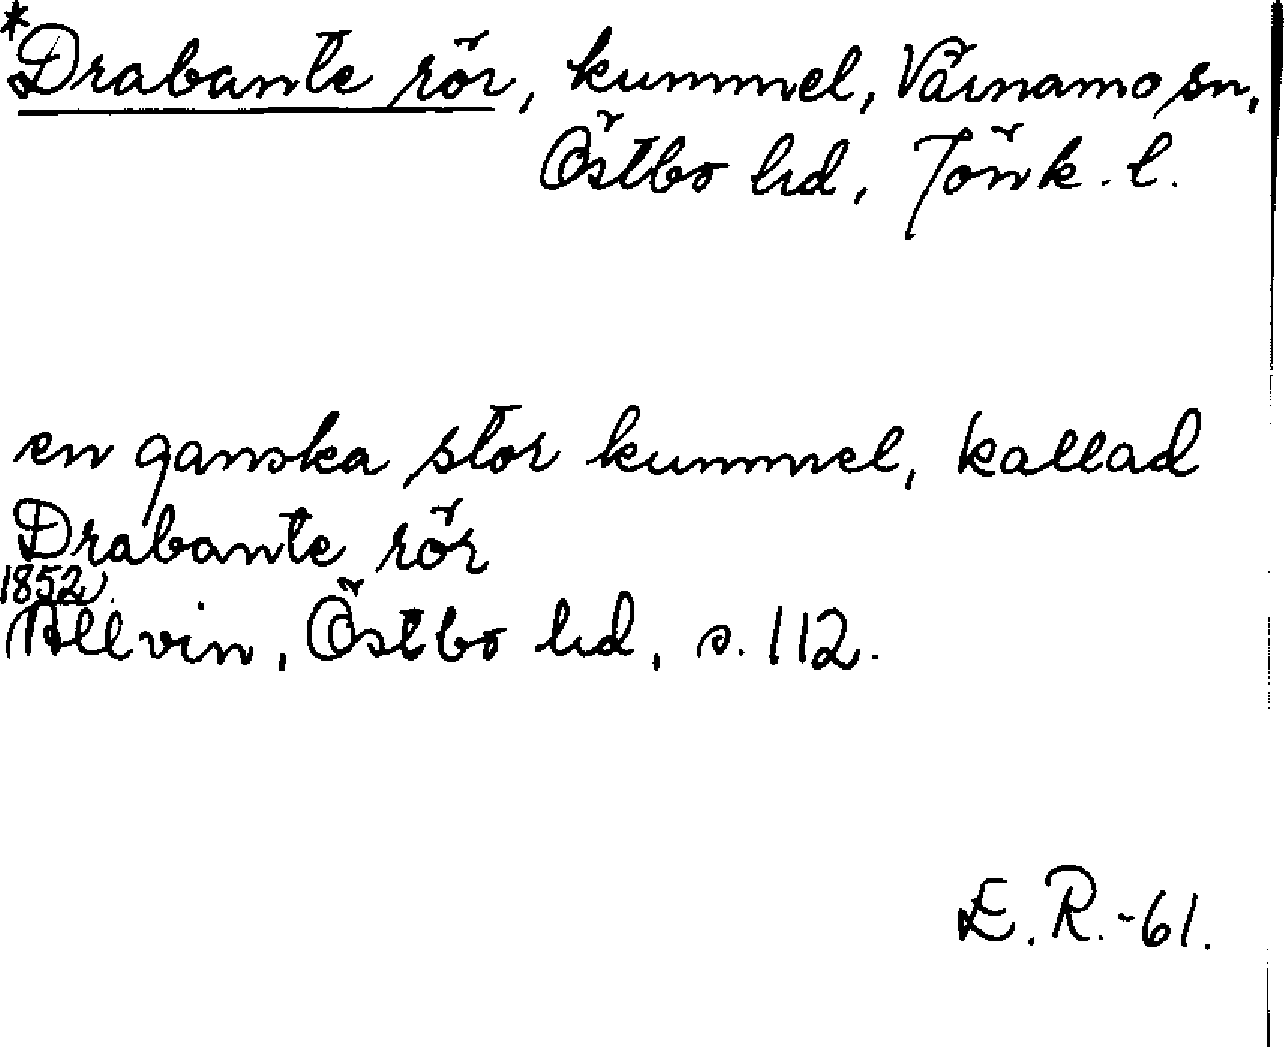 *Drabante rör, kummel, Värnamo sn,
Östbo hd, Jönk. l.
en ganska stor kummel, kallad
Drabante rör
1852.
Allvin, Östbo hd, s. 112.
E. R. -61.